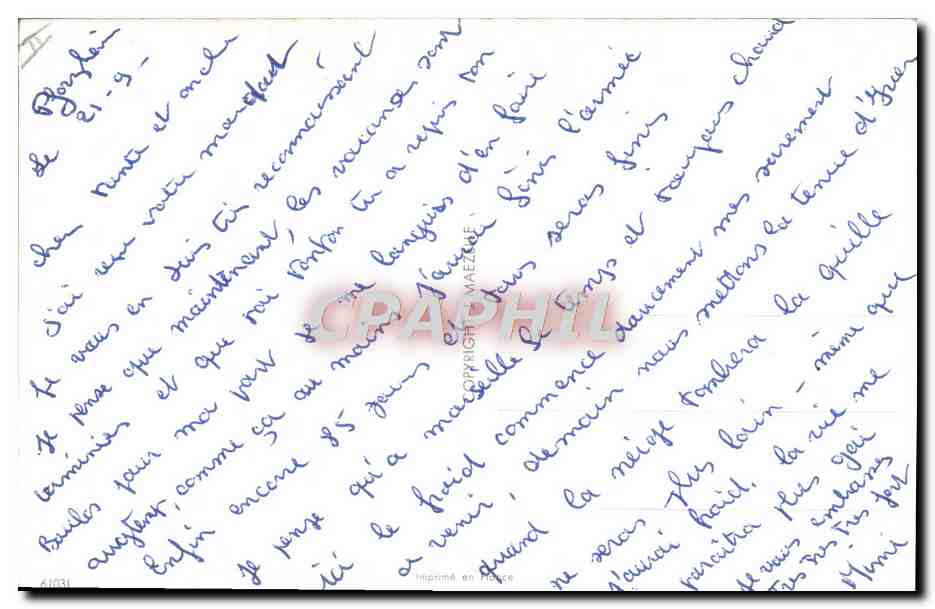 II
Le Pforzheim
21-9-
cher tante et oncle
J'ai reçu votre mandat
Je vous en suis très reconnaissant
Je pense que maintenant, les vacances sont
terminées et que toi tonton tu a repris ton
Boulot pour ma part je me languis d'en faire
autant, comme ça au moins j'aurai finis l'armée
Enfin encore 85 jours et sera finis
Je pense qu'a marseille le temps et toujours chaud
ici le froid commence doucement mes surement
a venir, demain nous mettons la tenue d'hiver
quand la neige tombera la quille
ne seras plus loin - même que
j'aurai froid, la vie me
paraitra plus gai
Je vous embrasse
très très très fort
Mimi
CPAPHIL
COPYRIGHT MAEZELLE
61031
Imprimé en France